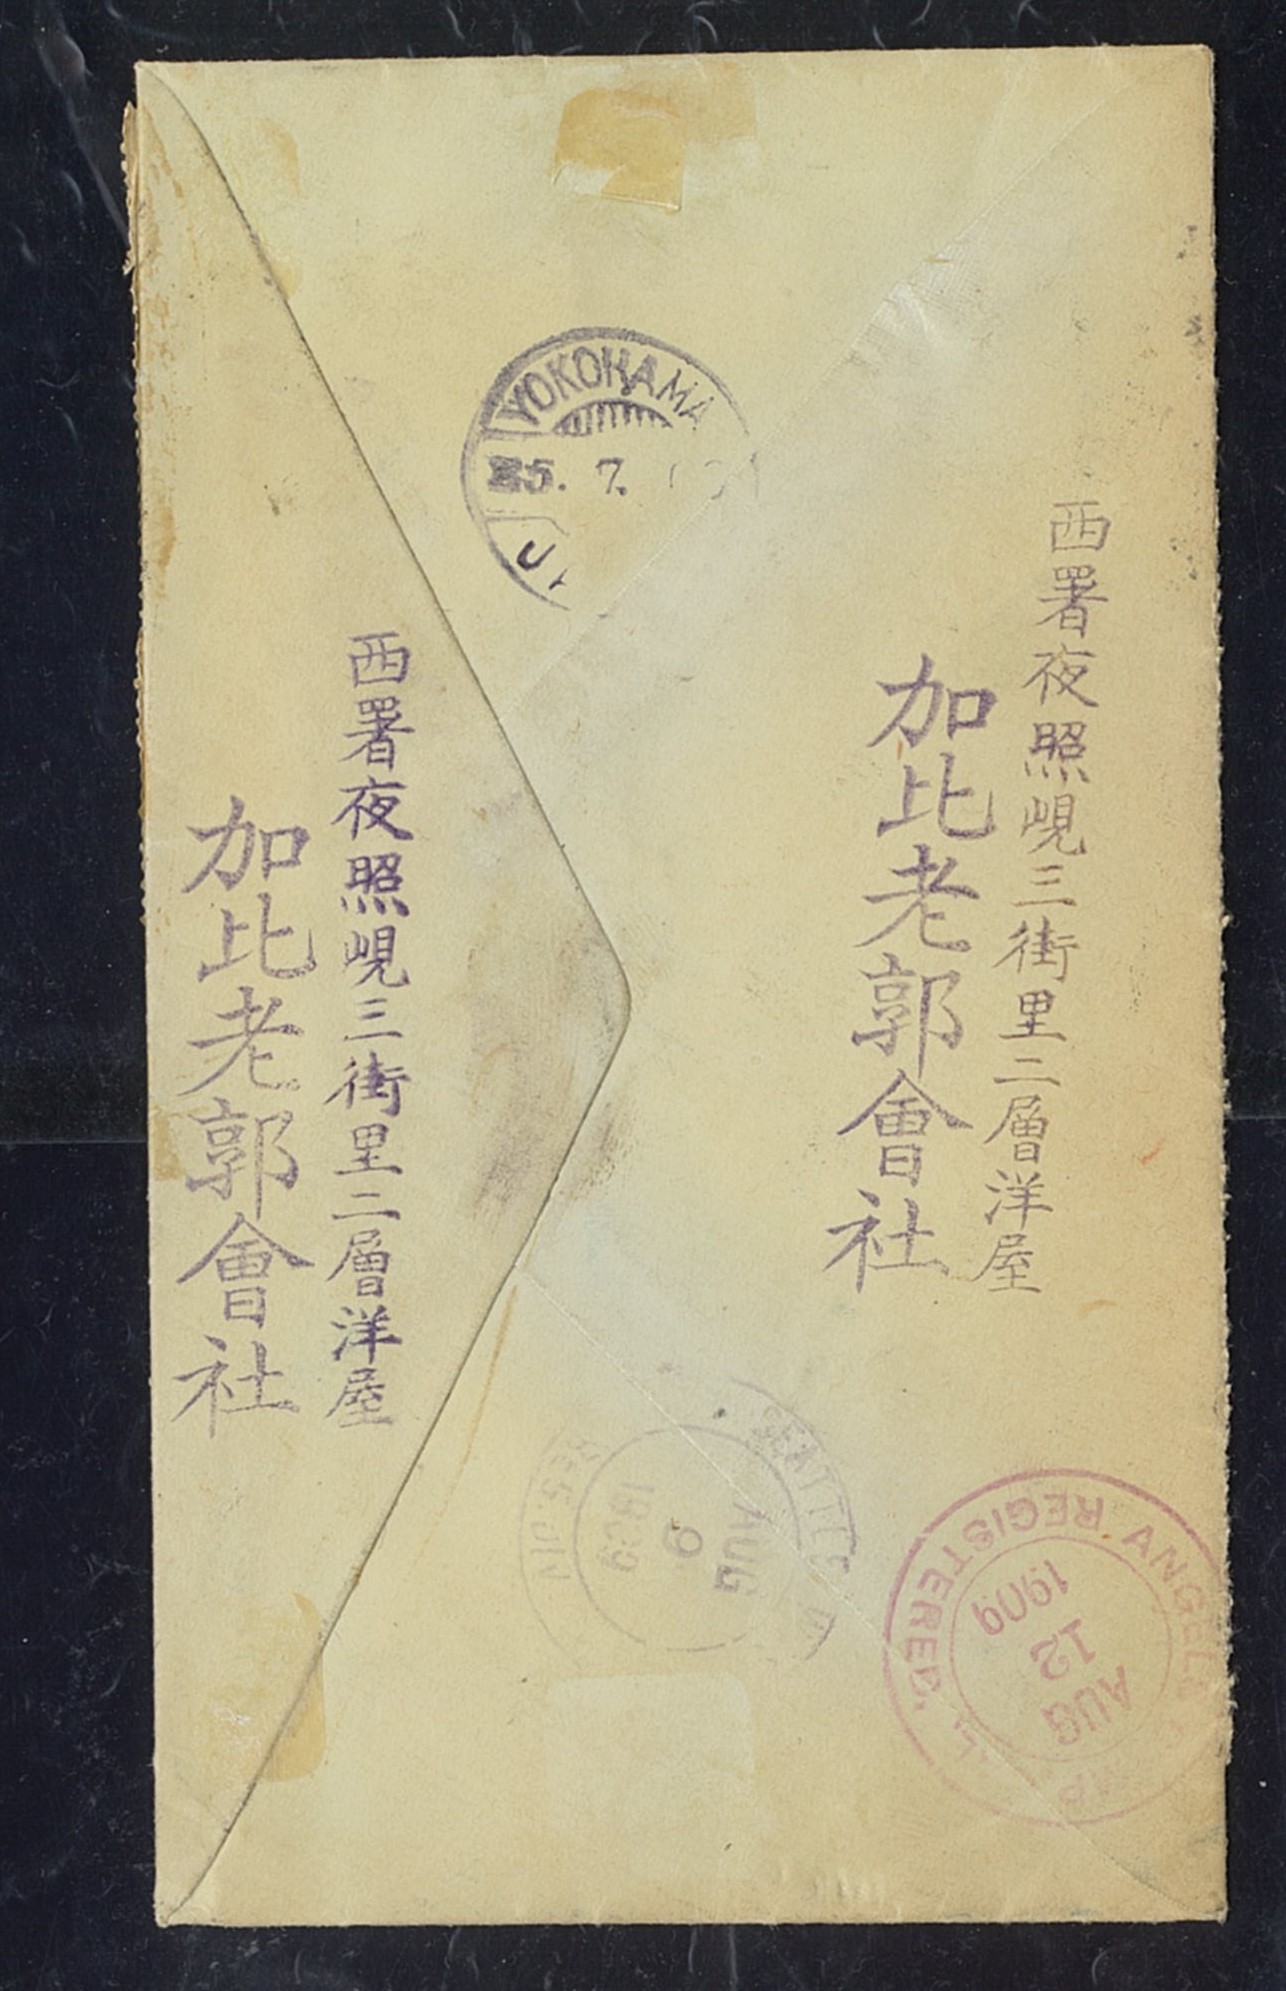 YOKOHAMA
25. 7.
西署夜照峴三街里二層洋屋
加比老郭會社
西署夜照峴三街里二層洋屋
加比老郭會社
SEATTLE
AUG
9
1909
REG. DIV
REGISTERED.
AUG
12
1909